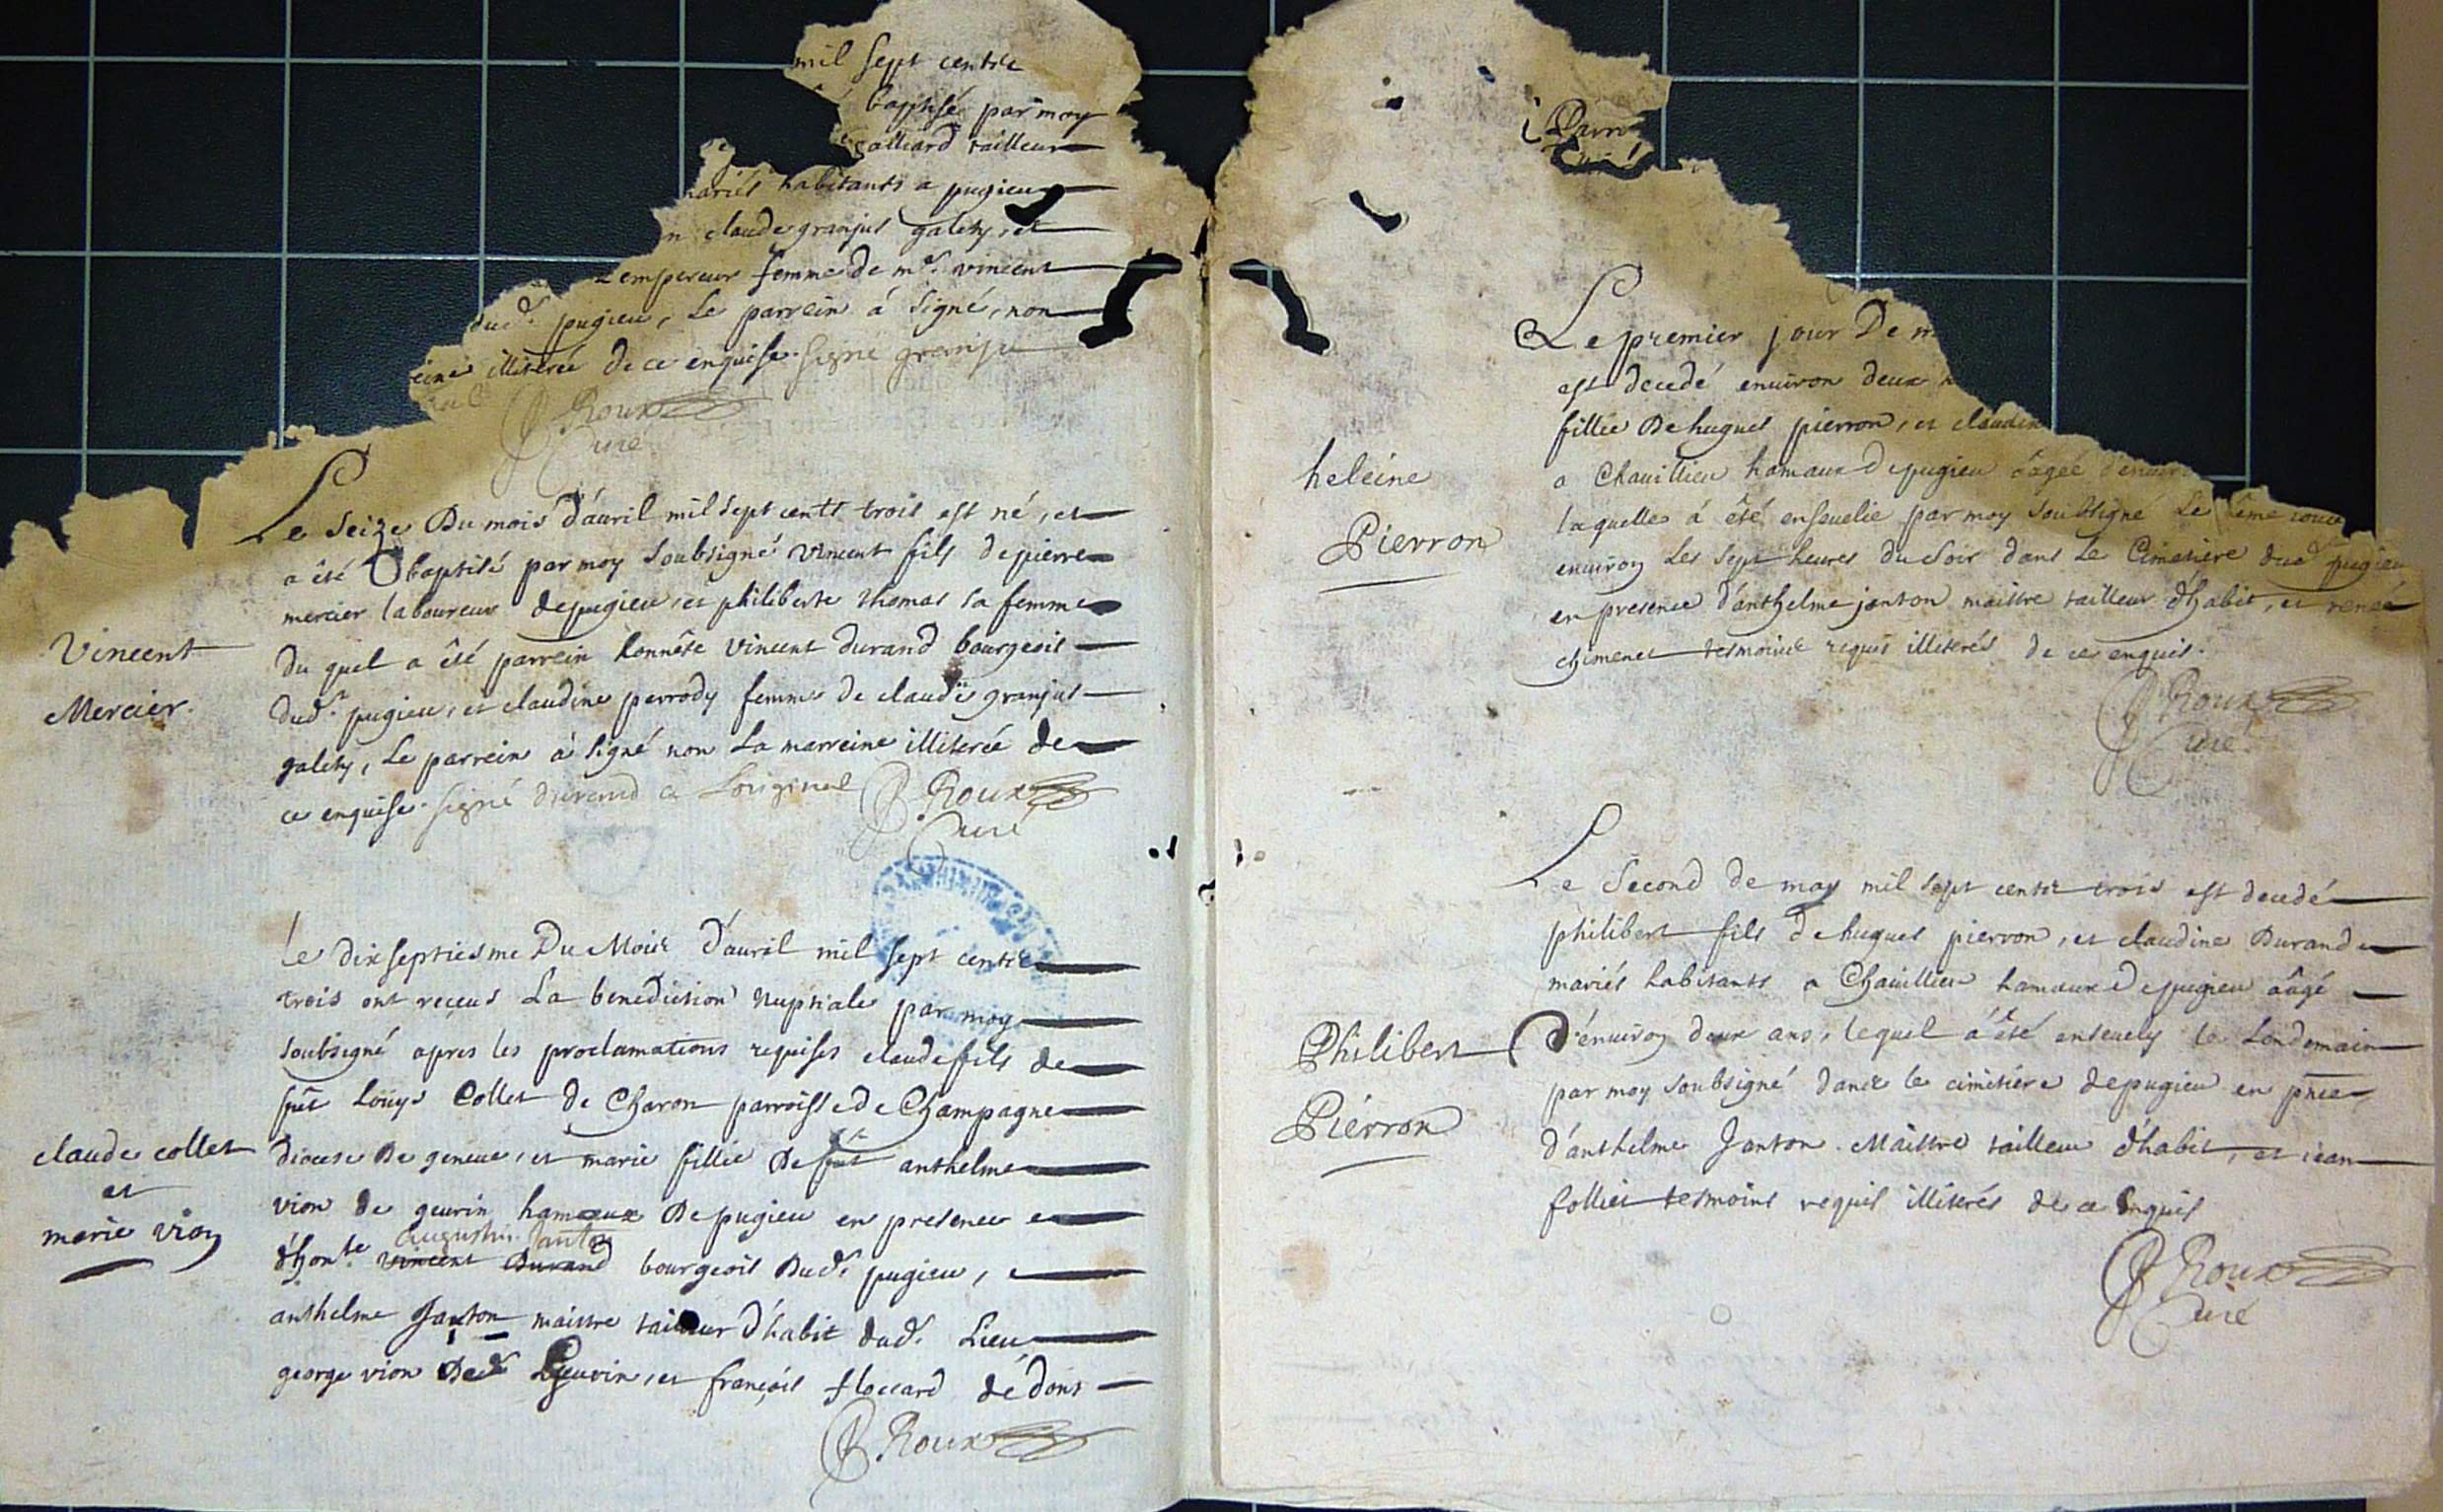 mil sept centz
baptisé par moy
galliard tailleur
mariés habitants a pugieu
claude granjus galety, et
Lempereur femme de m.e vincent
dud.t pugieu, Le parrein á signé, non
illiterée de ce enquise. signé granju
Roux
Curé
Le seize Du mois d'auril mil sept cents trois est né, et
a êté baptisé par moy soubsigné vincent fils de pierre
mercier laboureur de pugieu, et philiberte thomas sa femme
Vincent
Mercier.
du quel a êté parrein honnête vincent durand bourgeois
dud.t pugieu, et claudine perrody femme de claude granjus
galety, Le parrein á signé non La marreine illiterée de
ce enquise. signé durand a Loriginal
Roux
Curé
Le dixseptiesme Du Mois d'auril mil sept centz
trois ont receus La benediction Nuptiale par moy
soubsigné apres les proclamations requises claude fils de
fût Loüys Collet de Charon parroisse de Champagne
claude collet
et
marie vion
diocese De geneue, et marie fillie De fût anthelme
vion de geurin hamaux De pugieu en presence
augustin Janton
d'hon.te vincent Durand bourgeois Dud.t pugieu,
anthelme Janton maistre tailleur d'habit dud.t Lieu
george vion Ded.t geurin, et françois floccard de dons
Roux
Parr
Le premier jour De m
est decedé enuiron deux
fillie De hugues pierron, et claudin
heleine
Pierron
a Chauillieu hamaux de pugieu âagée d'enuir
laquelle á êté enseuelie par moy soubsigné Le même
enuiron Les sept heures du soir dans Le Cimetiere dud.t pugieu
en presence d'anthelme janton maistre tailleur d'habit, et
chimenet tesmoins requis illiterés de ce enquis.
Roux
Curé.
Le Second de may mil sept centz trois est decedé
philibert fils de hugues pierron, et claudine Durand
mariés habitants a Chauillieu hamaux De pugieu âagé
Philibert
Pierron
d'enuiron deux ans, lequel á été enseuely le Lendemain
par moy soubsigné dans le cimitiére de pugieu en pnce
d'anthelme Janton. Maistre tailleur d'habit, et iean
follier tesmoins requis illiterés de ce Enquis
Roux
Curé